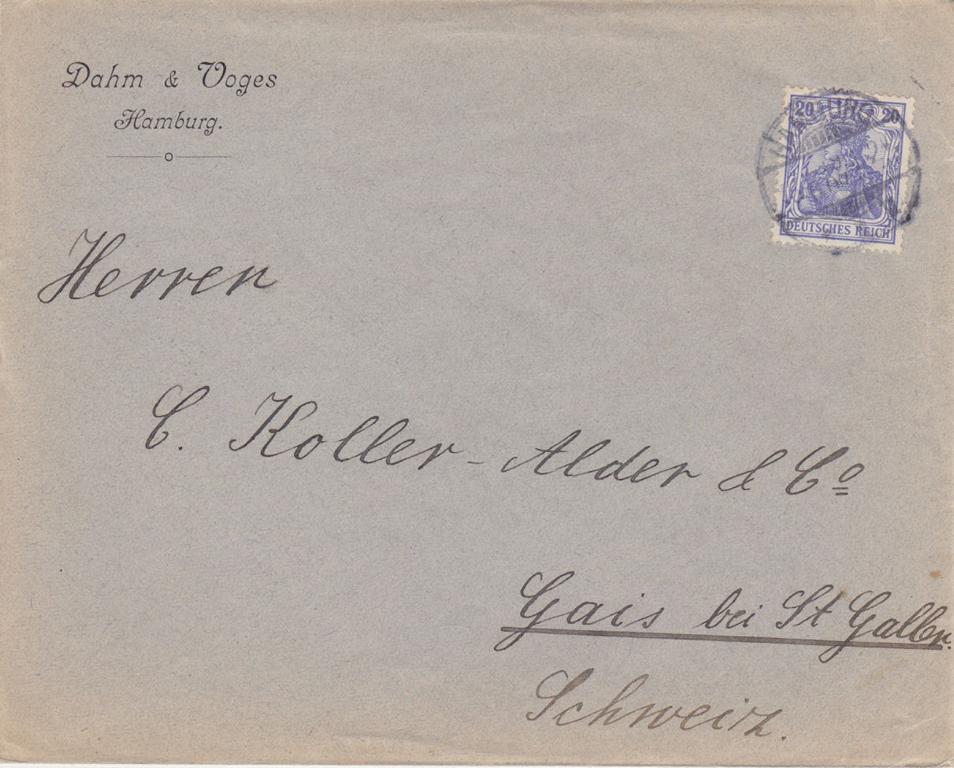 Dahm & Voges
Hamburg.
20 20
DEUTSCHES REICH
Herren
C. Koller-Alder & Co
Gais bei St Gallen.
Schweiz.